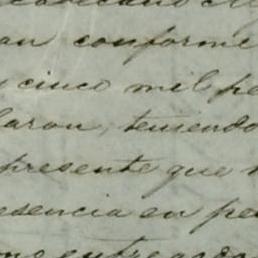 an conforme
cinco mil pe
laron, teniendo
presente que
esencia en pe
entregado